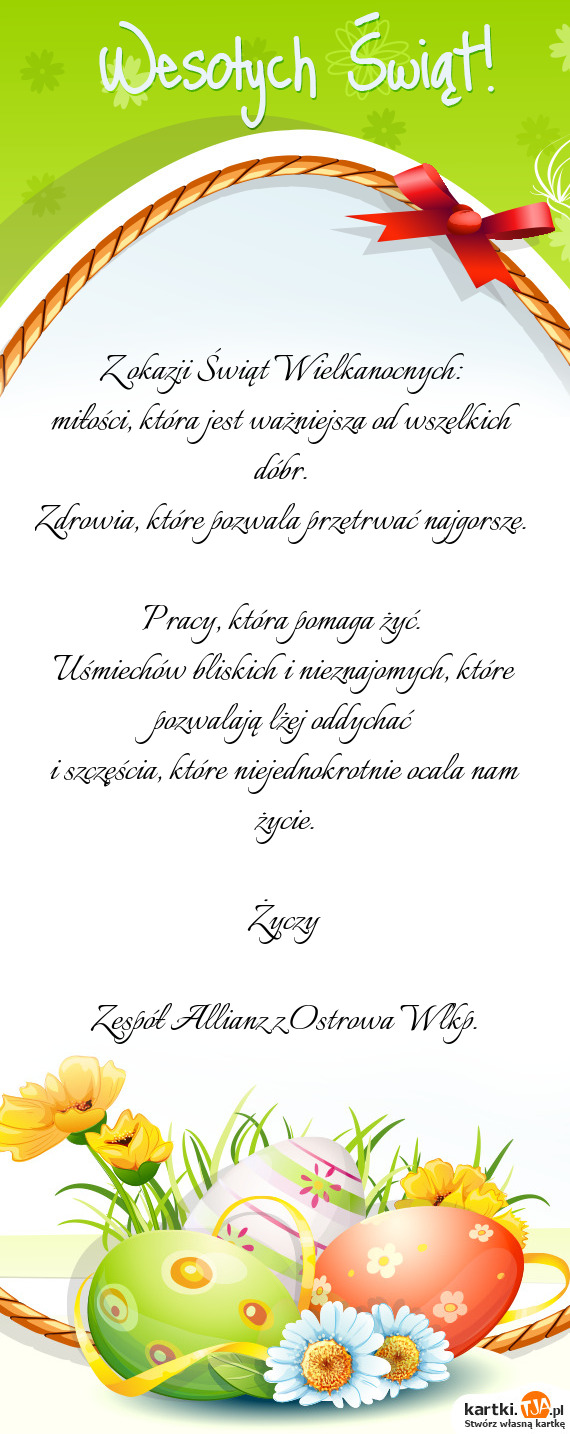 Wesołych Świąt!
Z okazji Świąt Wielkanocnych:
miłości, która jest ważniejsza od wszelkich
dóbr.
Zdrowia, które pozwala przetrwać najgorsze.
Pracy, która pomaga żyć.
Uśmiechów bliskich i nieznajomych, które
pozwalają lżej oddychać
i szczęścia, które niejednokrotnie ocala nam
życie.
Życzy
Zespół Allianz z Ostrowa Wlkp.
kartki.TJA.pl
Stwórz własną kartkę